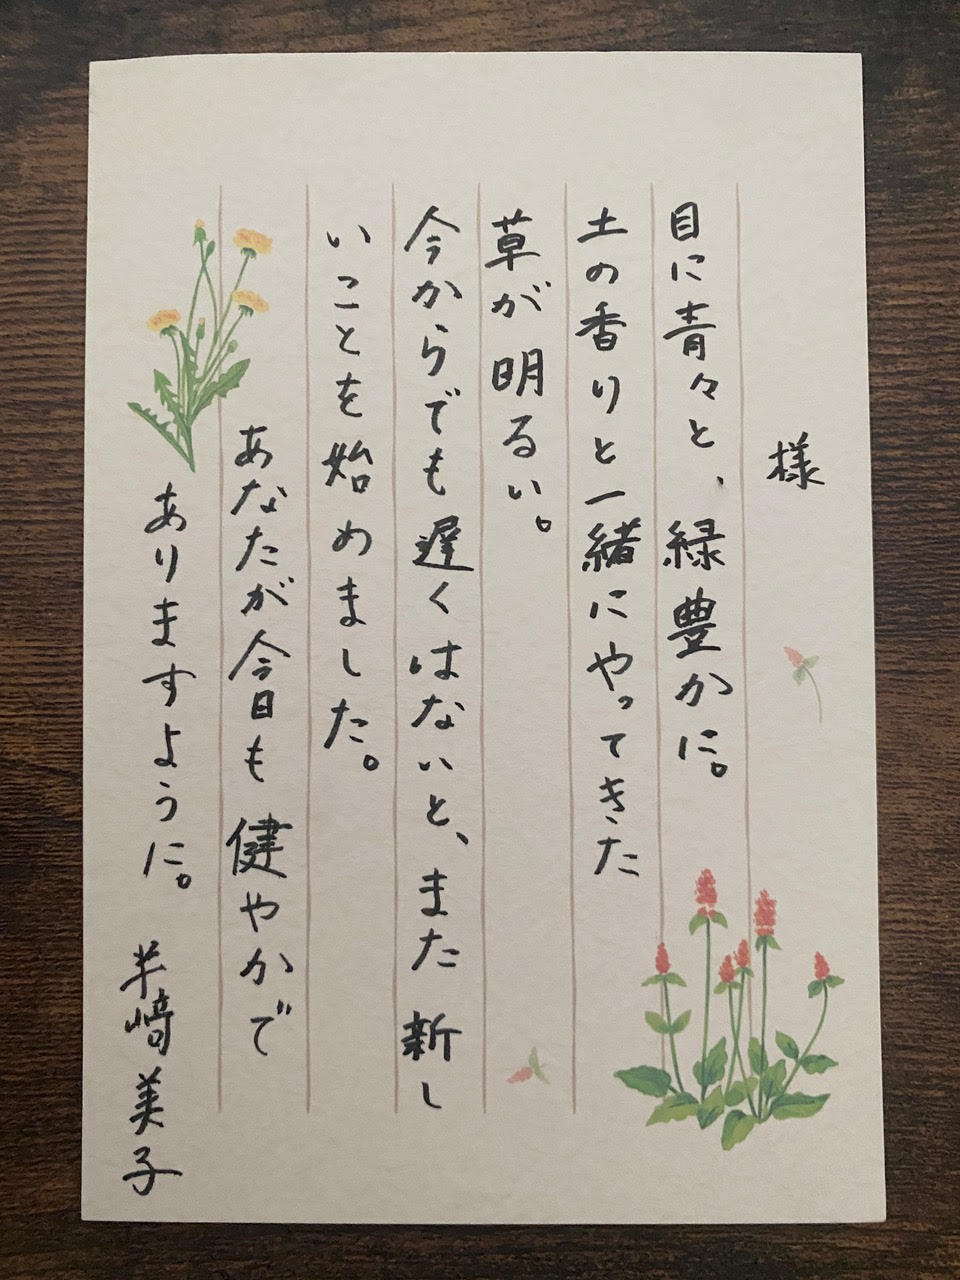 様
目に青々と、緑豊かに。
土の香りと一緒にやってきた
草が明るい。
今からでも遅くはないと、また新し
いことを始めました。
あなたが今日も健やかで
ありますように。
半﨑美子